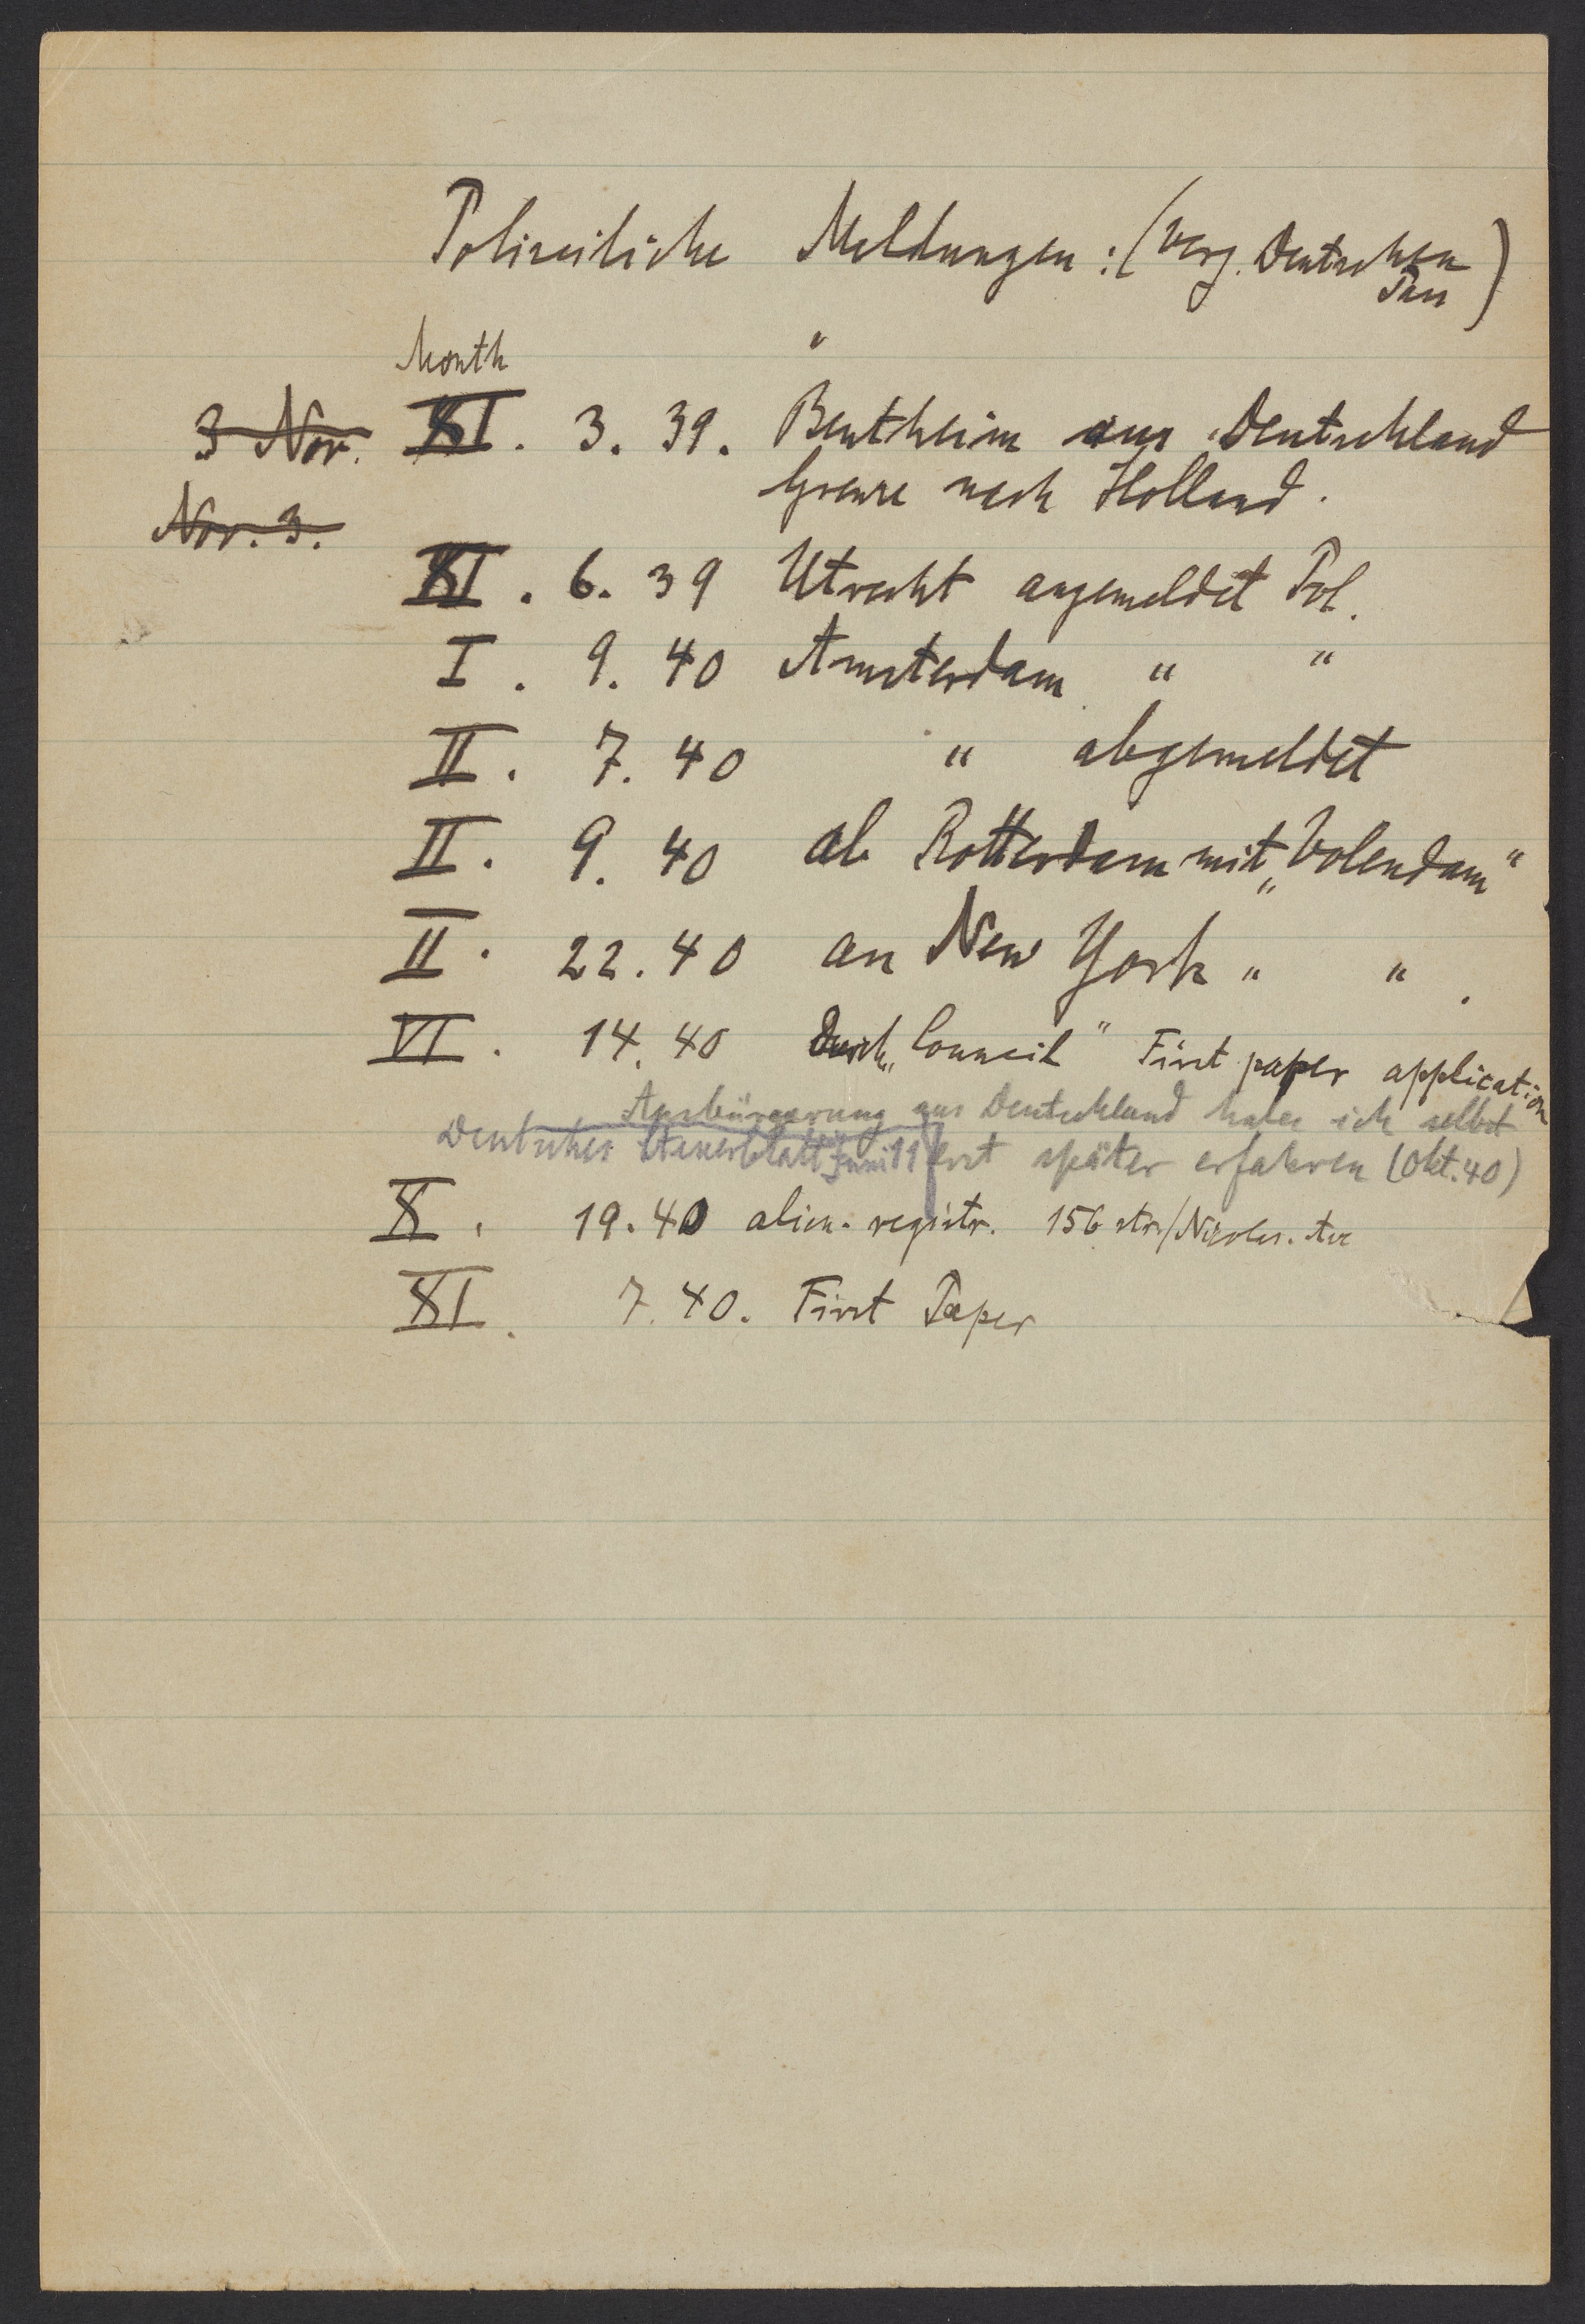 Polizeiliche Meldungen : (verg. Deutschen
Pass)
Month "
3 Nov. XI. 3. 39. Bentheim aus Deutschland
Grenze nach Holland.
Nov. 3.
XI. 6. 39 Utrecht angemeldet Pol.
I. 9. 40 Amsterdam " "
II. 7. 40 " abgemeldet
II. 9. 40 ab Rotterdam mit „Volendam“
II. 22. 40 an New York " ".
VI. 14. 40 Durch „Council“ First paper application
Ausbürgerung aus Deutschland habe ich selbst
Deutsches Steuerblatt Juni 11 erst später erfahren (Okt. 40)
X. 19. 40 alien. registr. 156 str/Nicolas. Ave
XI. 7. 40. First Paper